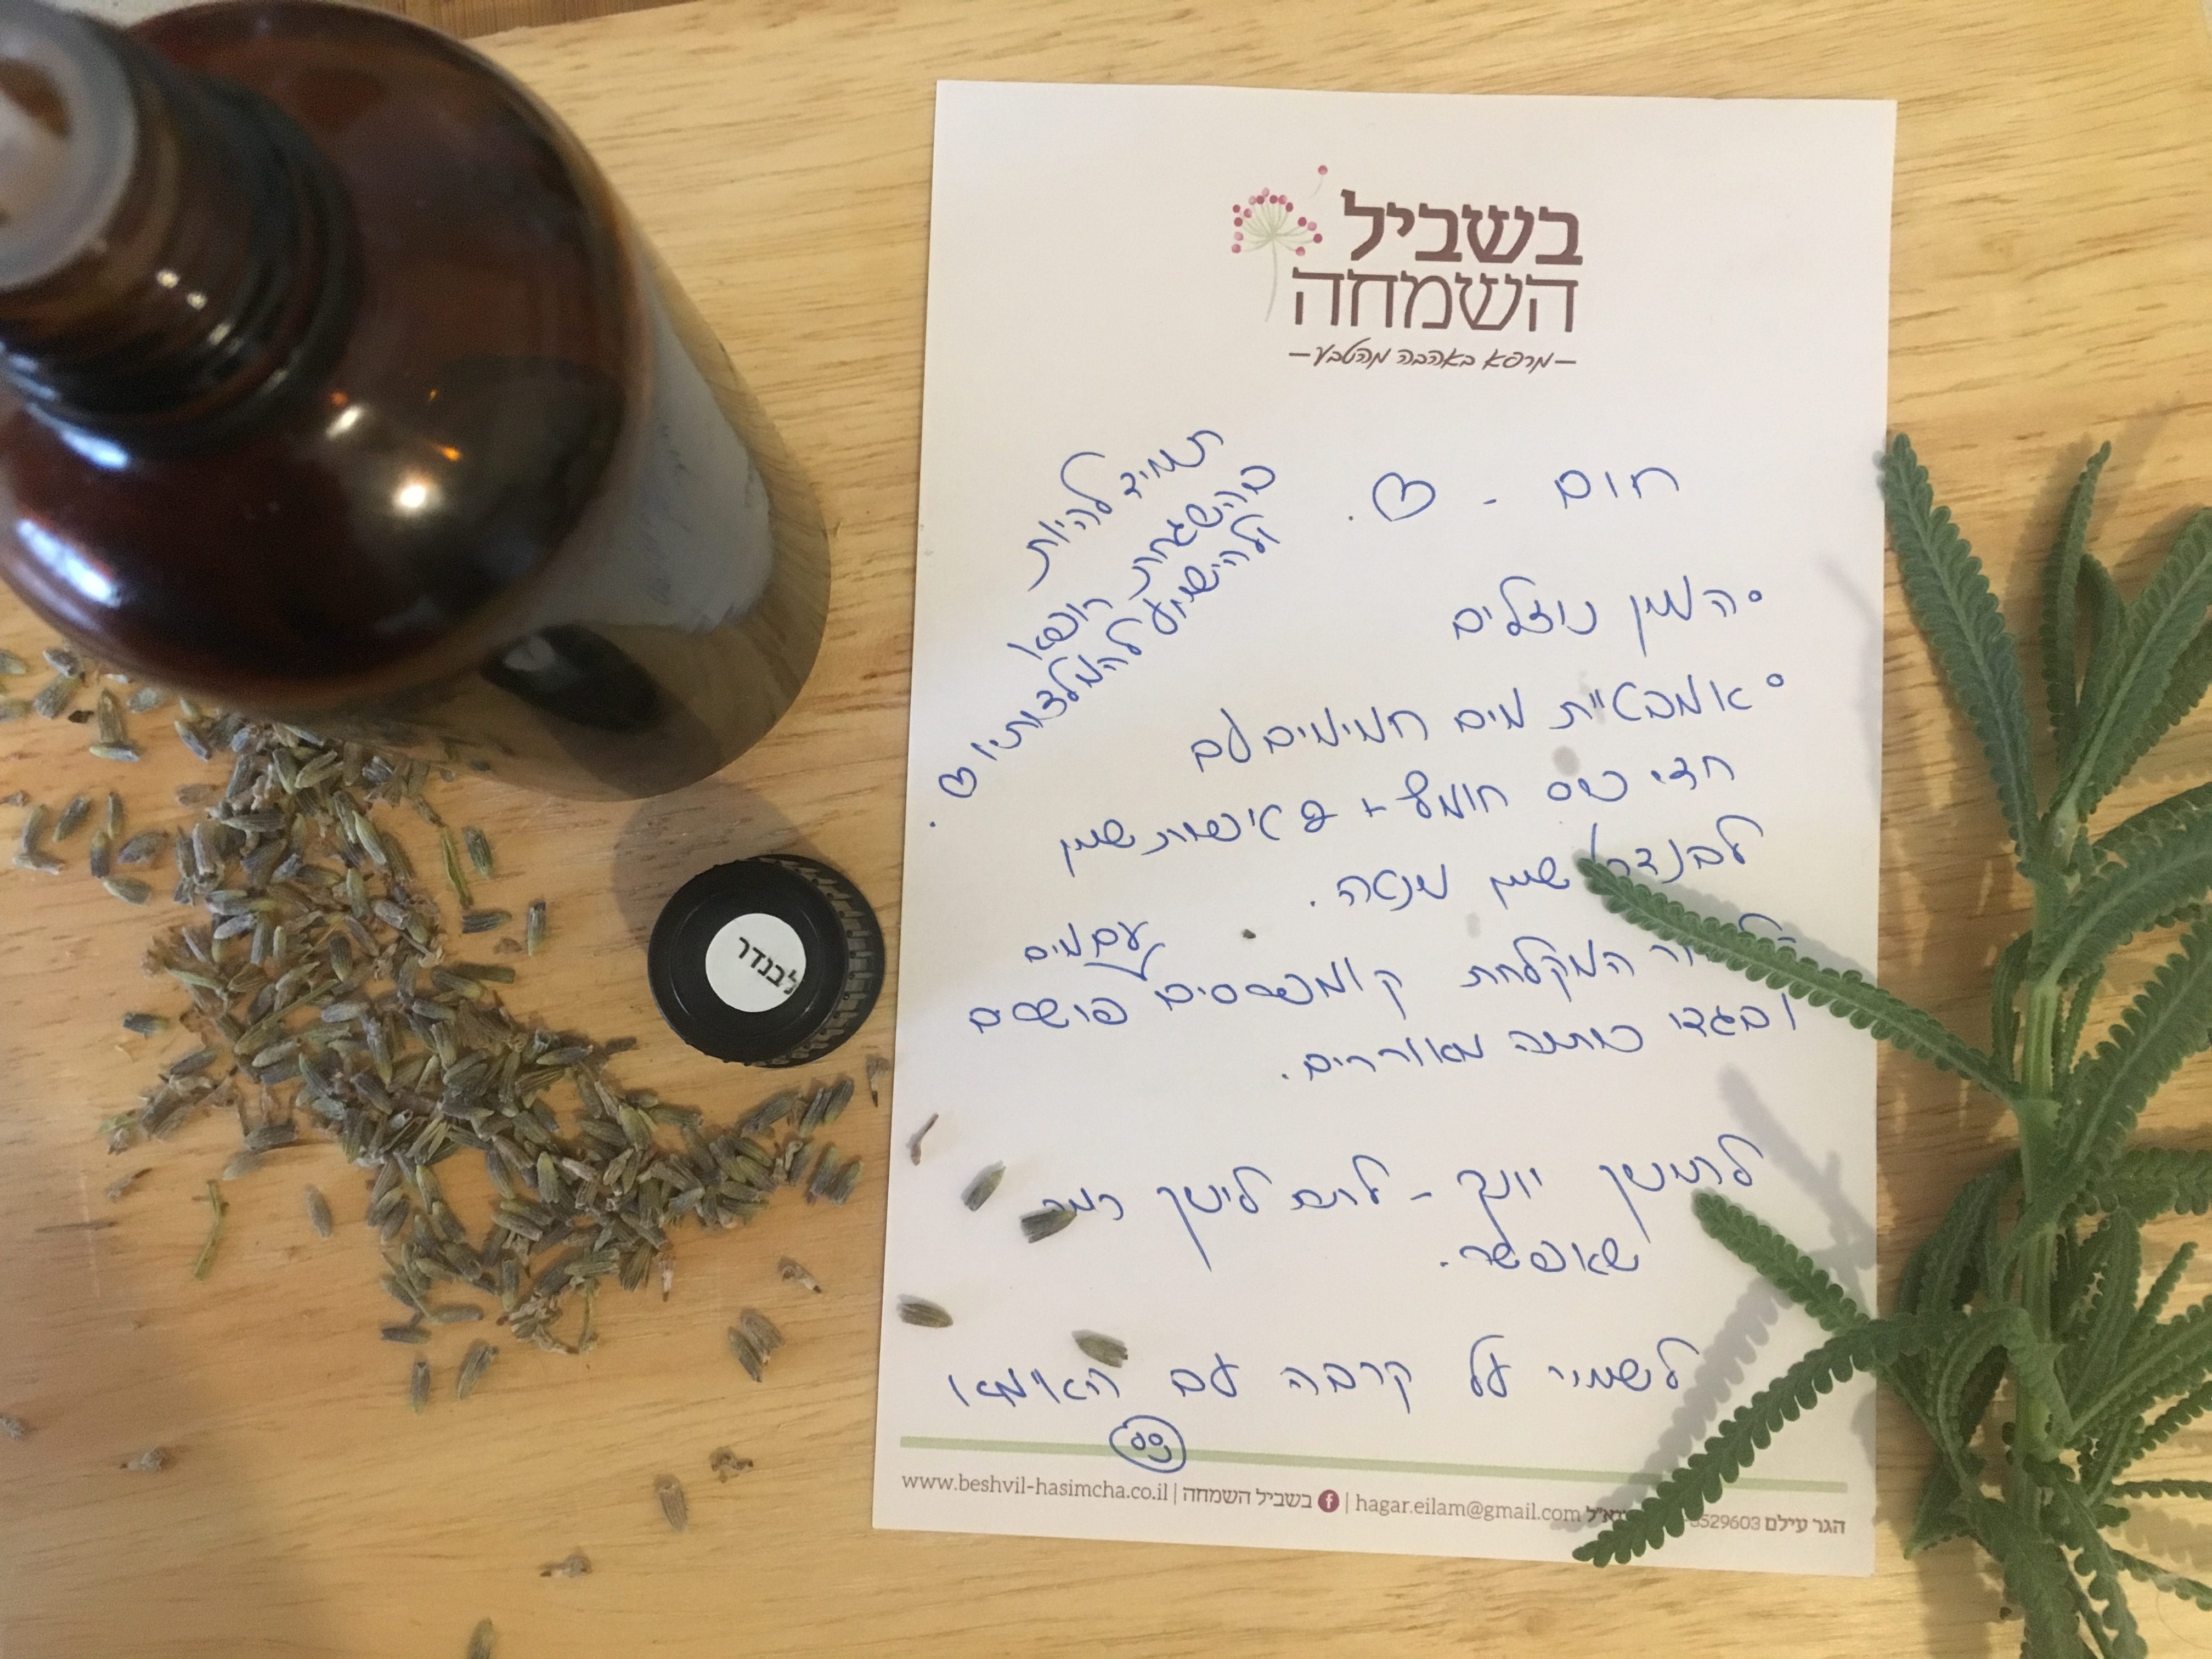 בשביל
השמחה
–מרפא באהבה מהטבע–
תמיד להיות
בהשגחת רופא
ולהישמע להמלצותיו ♡.
חום - ♡.
°המון נוזלים
°אמבטיית מים חמימים עם
חצי כוס חומץ + 8 טיפות שמן
לבנדר/שמן מנטה.
המקלחת קומפרסים פושרים
עם מים
ובגדי כותנה מאווררים.
להמשך יונק - לתת לינוק כמה
שאפשר.
לשמור על קרבה עם האמא
הגר עילם 8529603 hagar.eilam@gmail.com | בשביל השמחה | www.beshvil-hasimcha.co.il
לבנדר